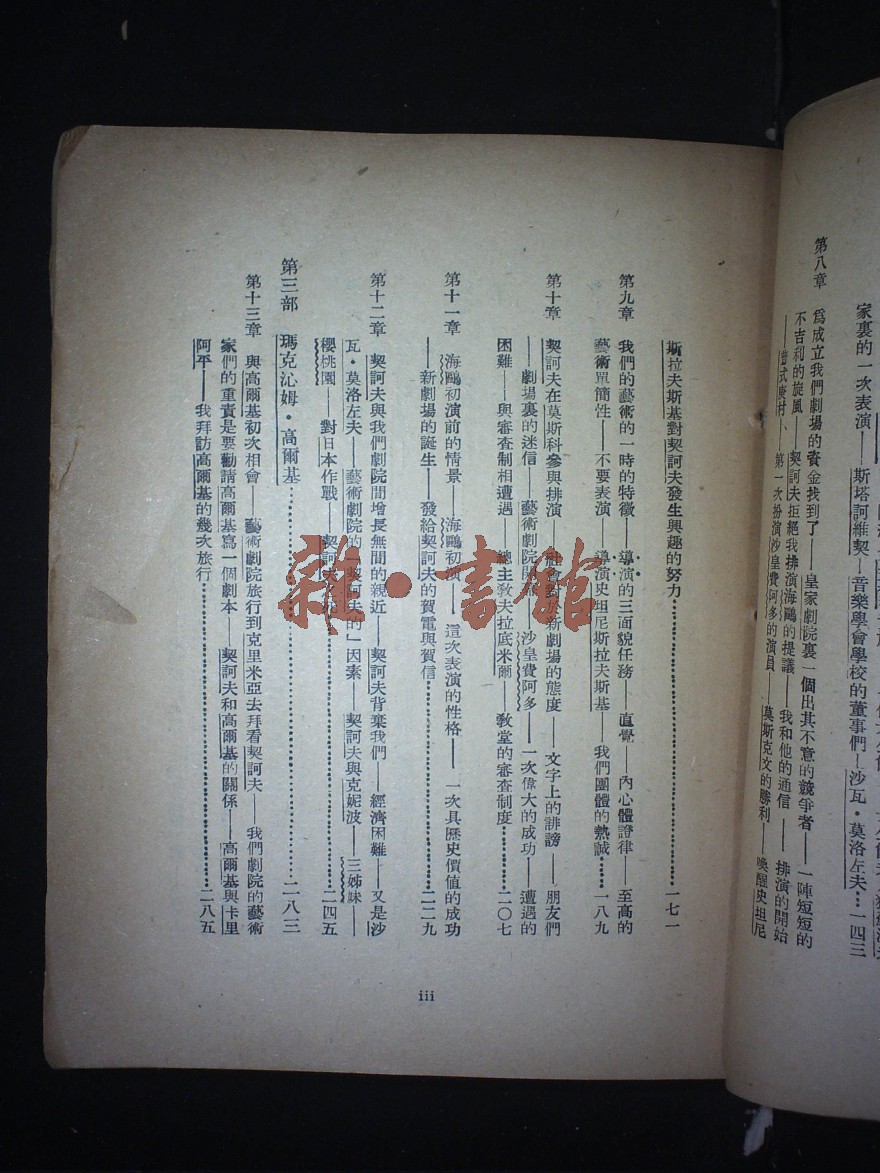 家裏的一次表演——斯塔訶維契——音樂學會學校的董事們——沙瓦•莫洛左夫…一四三
第八章 爲成立我們劇場的資金找到了——皇家劇院裏一個出其不意的競爭者——一陣短短的
不吉利的旋風——契訶夫拒絕我排演海鷗的提議——我和他的通信——排演的開始
第一次扮演沙皇費阿多的演員——莫斯克文的勝利——喚醒史坦尼
斯拉夫斯基對契訶夫發生興趣的努力…………一七一
第九章 我們的藝術的一時的特徵——導演的三面貌任務——直覺——內心體證律——至高的
藝術單簡性——不要表演——導演史坦尼斯拉夫斯基——我們團體的熱誠……一八九
第十章 契訶夫在莫斯科參與排演——對於新劇場的態度——文字上的誹謗——朋友們
——劇場裏的迷信——藝術劇院開——沙皇費阿多——一次偉大的成功——遭遇的
困難——與審查制相遭遇——總主教夫拉底米爾——教堂的審查制度…………二〇七
第十一章 海鷗初演前的情景——海鷗初演——這次表演的性格——一次具歷史價值的成功
——新劇場的誕生——發給契訶夫的賀電與賀信…………二二九
第十二章 契訶夫與我們劇院間增長無間的親近——契訶夫背棄我們——經濟困難——又是沙
瓦•莫洛左夫——藝術劇院的「契訶夫的」因素——契訶夫與克妮波——三姊妹——
櫻桃園——對日本作戰——契訶夫之…………二四五
第三部 瑪克沁姆•高爾基…………二八三
第十三章 與高爾基初次相會——藝術劇院旅行到克里米亞去拜看契訶夫——我們劇院的藝術
家們的重責是要勸請高爾基寫一個劇本——契訶夫和高爾基的關係——高爾基與卡里
阿平——我拜訪高爾基的幾次旅行…………二八五
iii
雜•書館